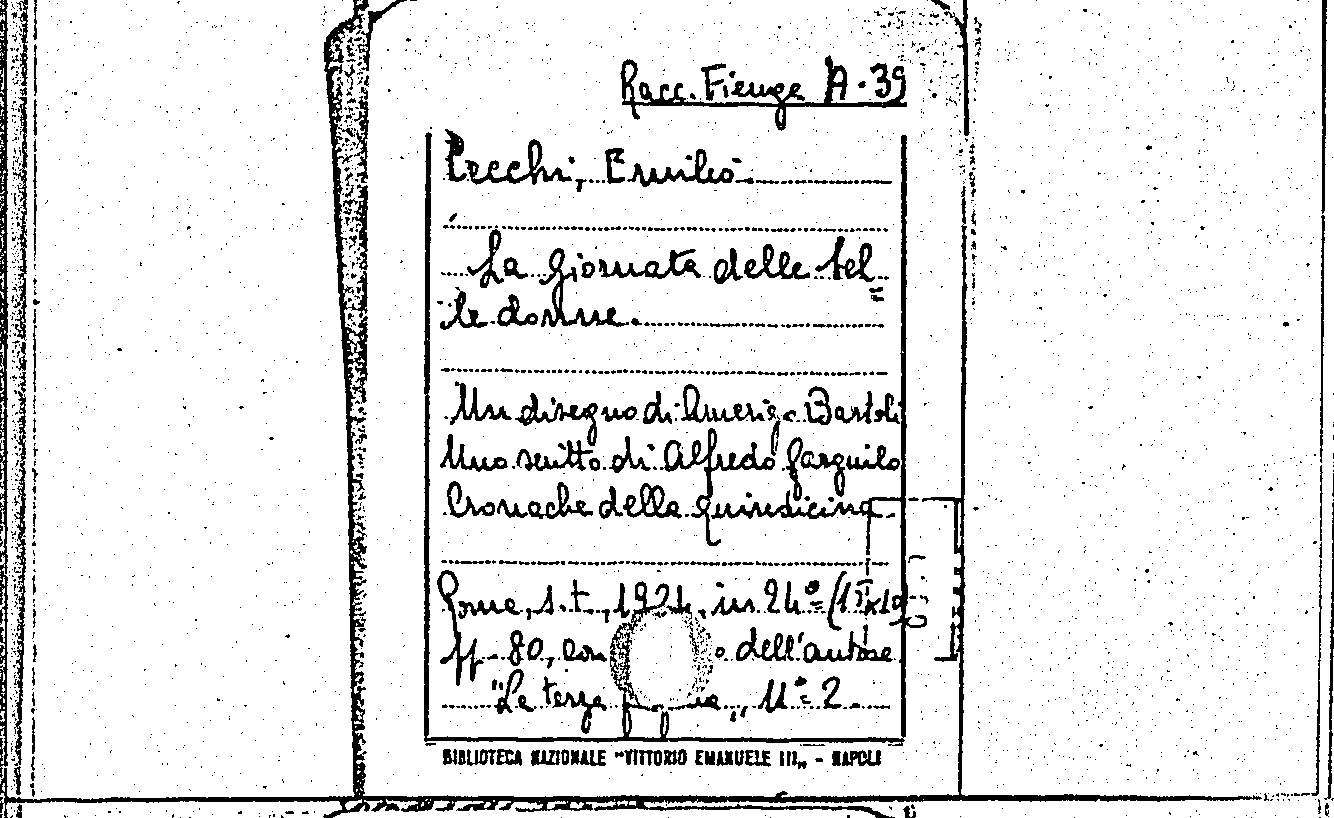 Racc. Fienga A-39
Cecchi, Emilio.
La giornata delle bel
le donne.
Un disegno di Amerigo Bartoli
Uno scritto di Alfredo Gargiulo
Cronache della quindicina
Roma, s.t., 1924, in 24°
pp. 80, con dell'autore
"La terza N° 2.
BIBLIOTECA NAZIONALE "VITTORIO EMANUELE III„ - NAPOLI